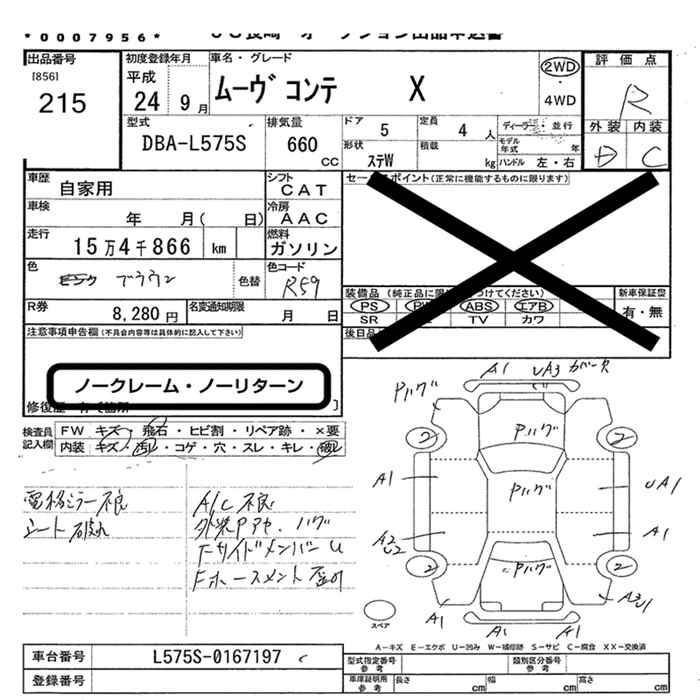 *0007956*
出品番号
[856]
215
初度登録年月
平成
24 9月
車名・グレード
ムーヴ コンテ X
2WD
・
4WD
評価点
R
外装 内装
D C
型式
DBA-L575S
排気量
660
CC
ドア
5
定員
4人
ディーラー・並行
モデル年式 年
形状
ステW
積載
kg
ハンドル 左・右
車歴
自家用
シフト
CAT
車検
年 月( 日)
冷房
AAC
走行
15万4千866 km
燃料
ガソリン
色
ブラウン
色替
色コード
R59
R券
8,280円
名変通知期限
月 日
セールスポイント(正常に機能するものに限ります)
装備品
PS
ABS
エアB
SR
TV
カワ
新車保証書
有・無
後日品
注意事項申告欄(不具合内容等は具体的に記入して下さい)
ノークレーム・ノーリターン
検査員
記入欄
FW キズ・飛石・ヒビ割・リペア跡・×要
内装 キズ・汚レ・コゲ・穴・スレ・キレ・破レ
電格ミラー不良
シート破れ
A/C不良
外装Pアセ、ハゲ
FサイドメンバーU
A1
UA3 カバー欠
Pハゲ
Pハゲ
2
2
A1
Pハゲ
UA1
A2
U2
A1
2
2
Pハゲ
A1
A1
A1
スペア
A-キズ E-エクボ U-凹み W-補修跡 S-サビ C-腐食 XX-交換済
車台番号
L575S-0167197
登録番号
型式指定番号
参考
類別区分番号
参考
車庫証明用
参考
長さ cm
幅 cm
高さ cm